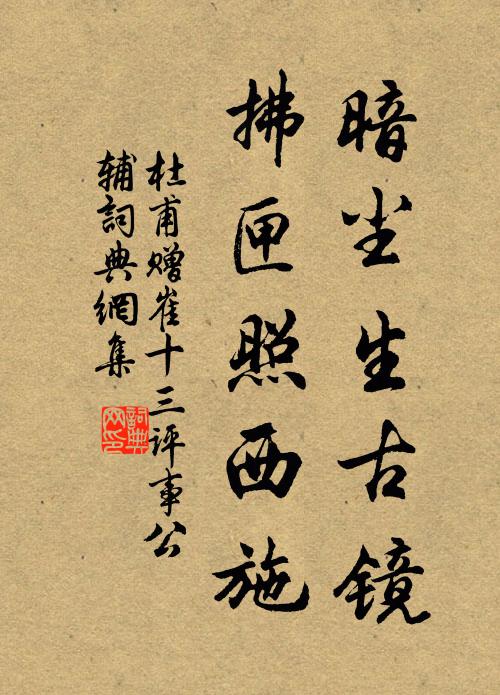 暗尘生古镜
拂匣照西施
杜甫赠崔十三评事公
辅词典网集
詞典
网印